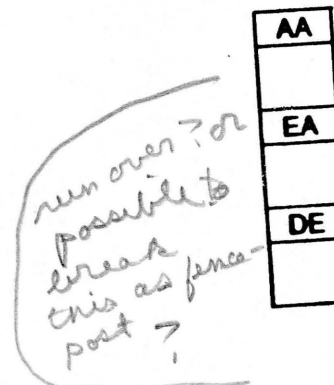 AA
EA
DE
run over? or
possible to
break
this as fence-
post?